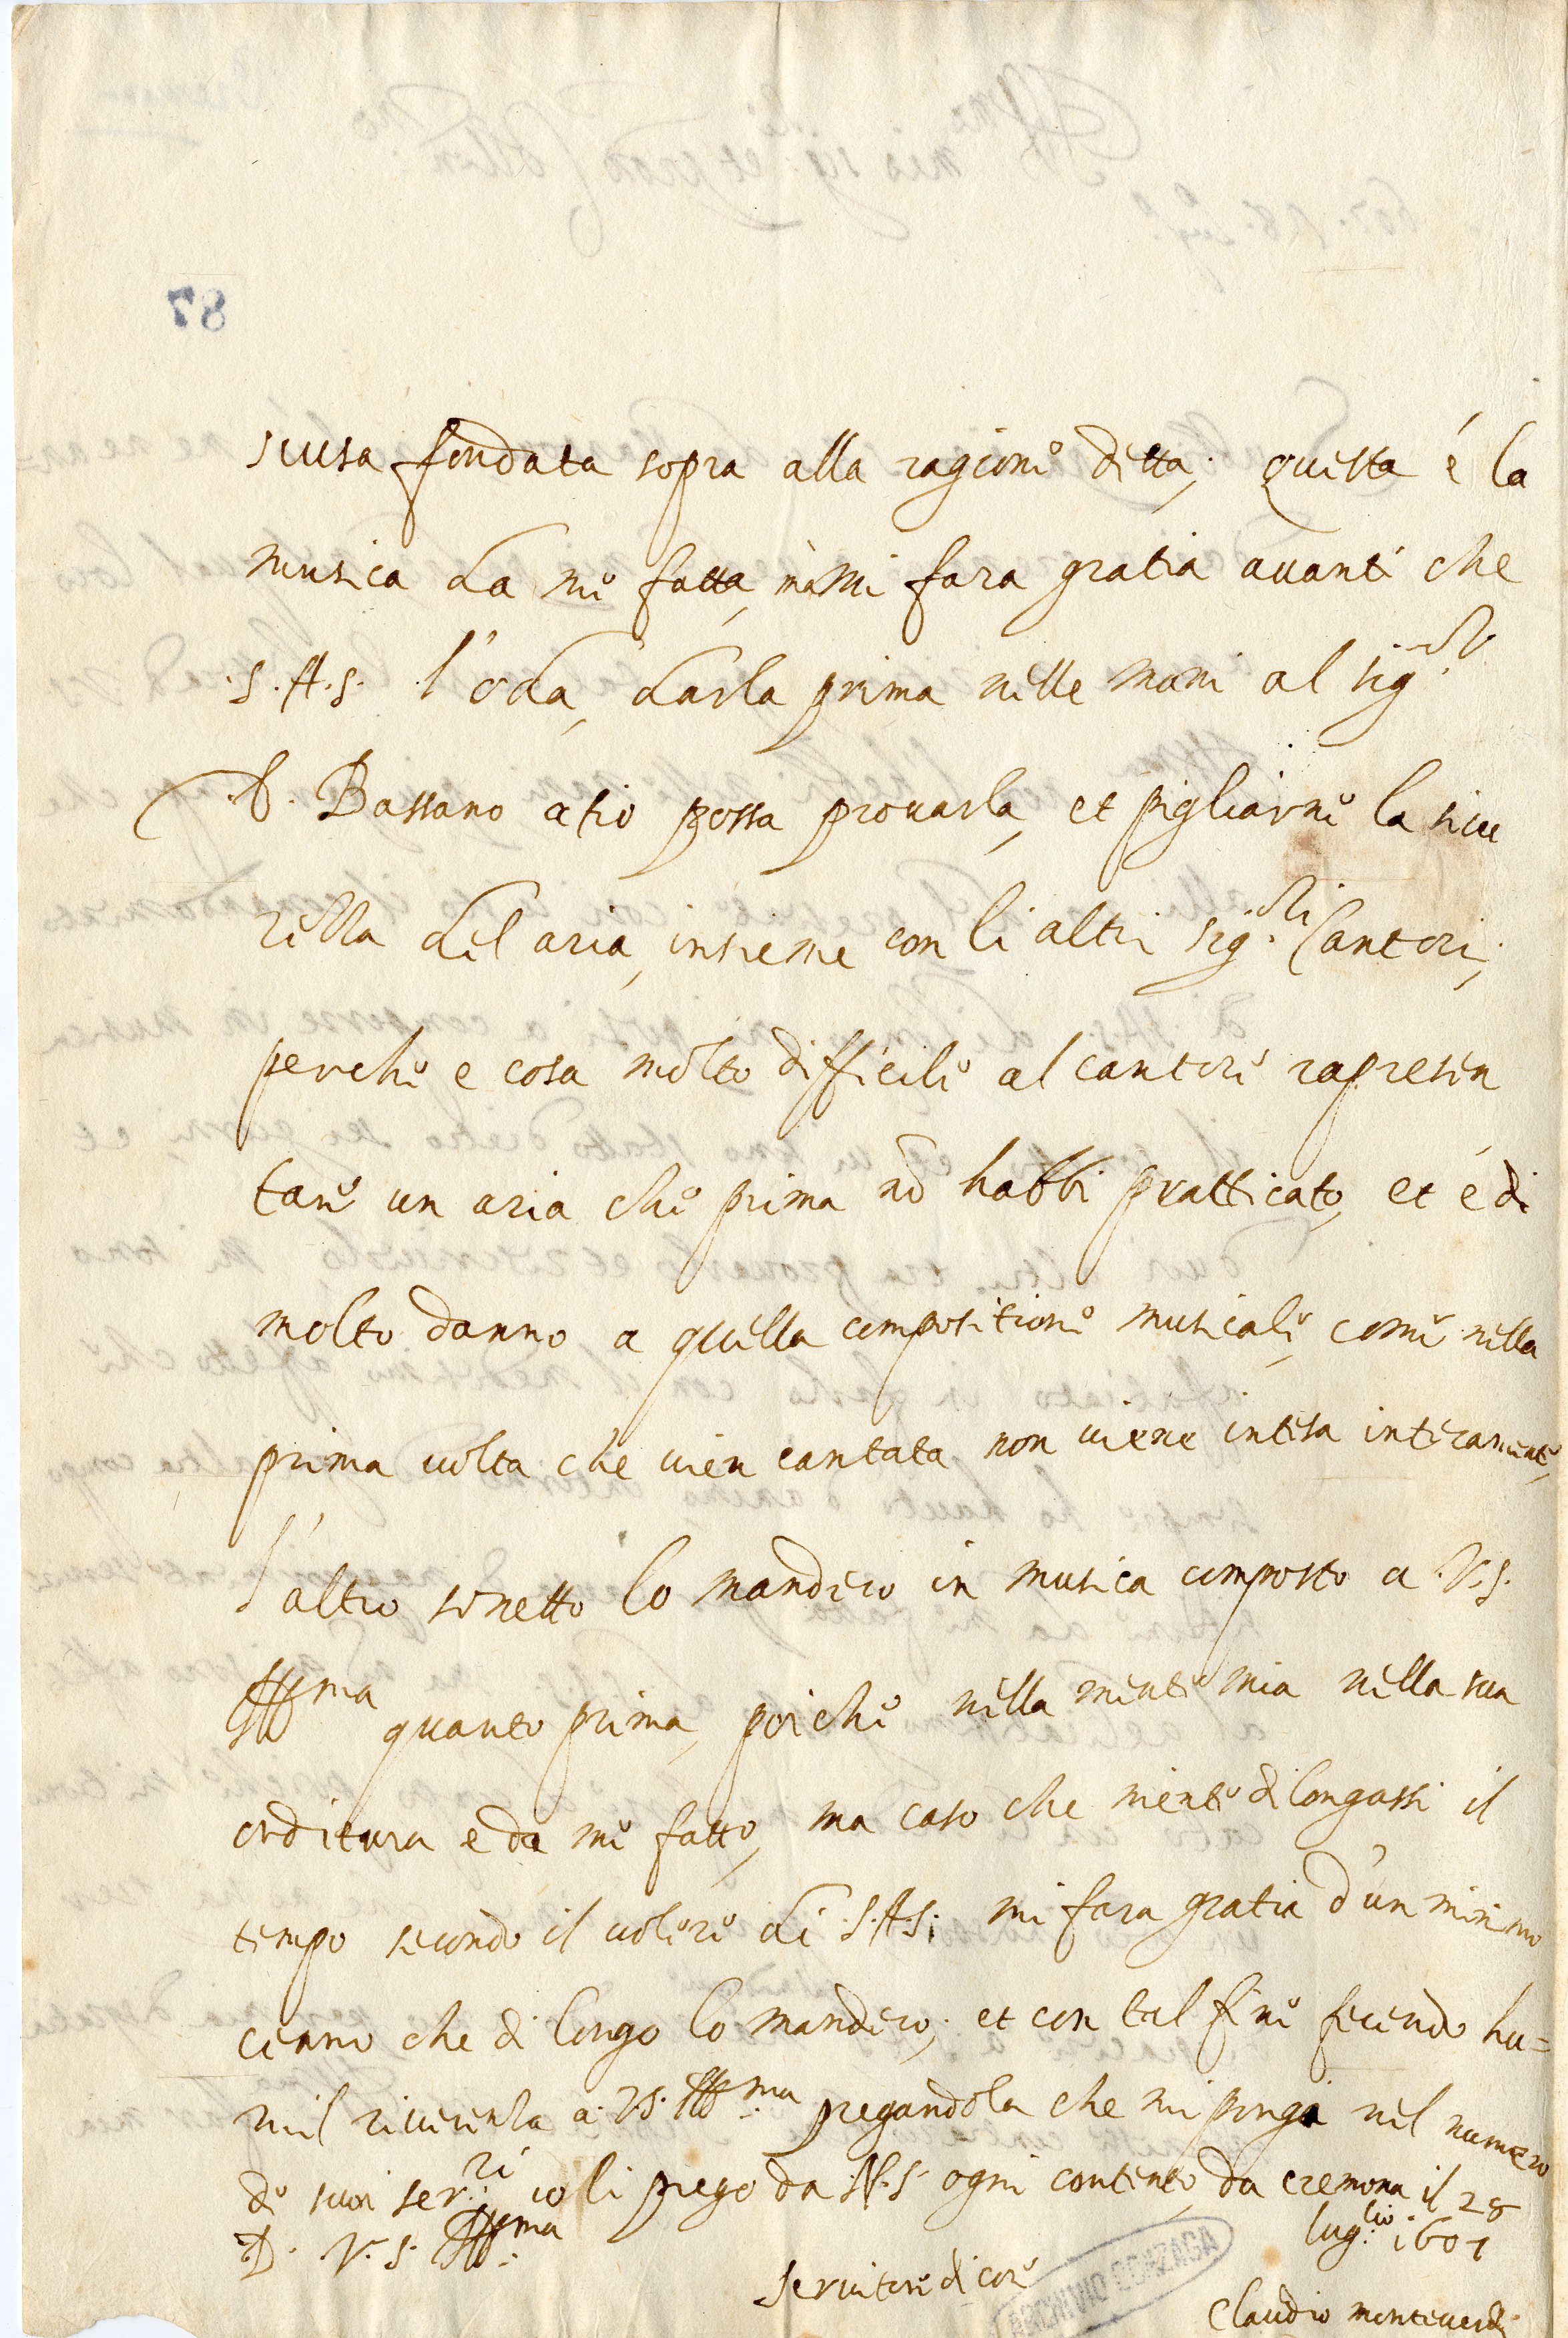 87
scusa fondata sopra alla ragione detta; questa é la
musica da me fatta, mà mi fara gratia auanti che
.S.A.S. l'oda, darla prima nelle mani al sig.r
.D. Bassano atiò possa prouarla, et pigliarne la sicu
rezza del aria, insieme con li altri sig.ri Cantori;
perche e cosa molto difficile al cantore rapresen
tare un aria che prima nō habbi pratticato, et é di
molto danno a quella compositione musicale, come nella
prima uolta che vien cantata non viene intesa interamente,
l'altro sonetto lo mandero in musica composto a .V.S.
Illma quanto prima, poi che nella mente mia nella sua
orditura e da me fatto, ma caso che niente di longassi il
tempo secondo il uolere di .S.A.S: mi fara gratia d'un minimo
cenno che di longo lo mandero; et con tal fine fecendo hu=
mil riuerenza a: V.S. Illma pregandola che mi ponga nel numero
de suoi ser:ri io li prego da .N.S. ogni contento, da cremona il 28
lug:lio 1607
D. V. S. Illma
seruitore di core
Claudio Monteuerdi
ARCHIVIO GONZAGA